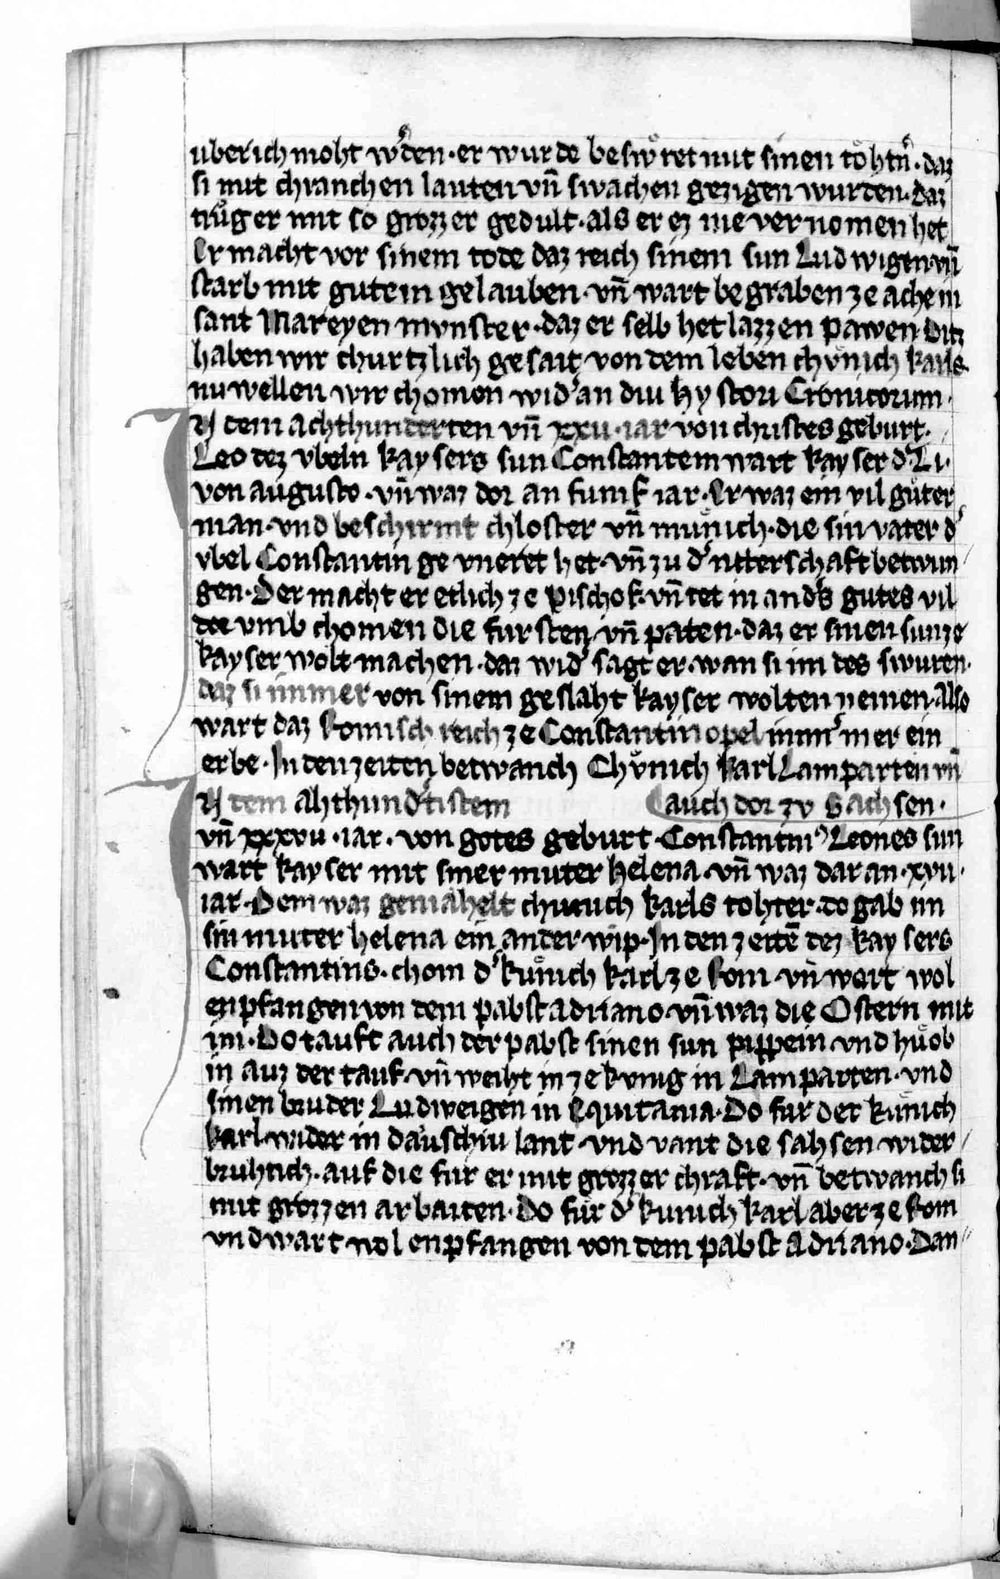 uberich moht wͤden · er wurde beswͦret mit sinen toͤhtn̄ · daz
si mit chranchen lauten vn̄ swachen gezigen wurden · daz
truͦg er mit so grozzer gedult · als er ez nie vernomen het
Er macht vor sinem tode daz reich sinem sun Ludwigen · vn̄
starb mit gutem gelauben · vn̄ wart begraben ze ache in
sant Mareyen mvnster · daz er selb het lazzen pawen · Ditz
haben wir churtzlich gesait von dem leben chvͤnich karls
nu wellen wir chomen wid' an diu hystori Cronicorum ·
IN dem achthunderten vn̄ xxv · iar von christes geburt ·
Leo dez vbeln kaysers sun Constantem wart kayser d' · Li ·
von augusto · vn̄ waz dor an funf iar · Er waz ein vil guͤter
man · vnd beschirmt chloster vn̄ muͤnich · die sin vater d'
vbel Constantin gevneret het · vn̄ zu d' ritterschaft betwun
gen · Der macht er etlich ze pischof · vn̄ tet in and's gutes vil
dor vmb chomen die fursten vn̄ paten · daz er sinen sun ze
kayser wolt machen · daz wid' sagt er · wan si im des swuren ·
daz si immer von sinem geslaht kayser wolten nemen · also
wart daz Romisch reich ze Constantinopel imm' mer ein
erbe · In den zeiten betwanch Chvͤnich karl Lamparten vn̄
IN dem ahthund'tistem (auch dor zv Sachsen ·
vn̄ xxxvu · iar · von gotes geburt · Constantin' Leones sun
wart kayser mit siner muter helena · vn̄ waz daran · xvii ·
iar · Dem waz gemahelt chunich karls tohter · do gab im
sin muter helena ein ander wip · In den zeitē dez kaysers
Constantins · chom d' kuͤnich karl ze Rom · vn̄ wart wol
enpfangen von dem pabst adriano · vn̄ waz die Ostern mit
im · Do tauft auch der pabst sinen sun pippein vnd huͦb
in auz der tauf · vn̄ weiht in ze kvnig in Lamparten · vnd
sinen bruder Ludweigen in Equitania · Do fur der kuͤnich
karl wider in dauschiu lant · vnd vant die sahsen wider
bruhtich · auf die fur er mit grozzer chraft · vn̄ betwanch si
mit grozzen arbaiten · Do fuͦr d' kunich karl aber ze Rom
vnd wart wol enpfangen von dem pabst adriano · Dan